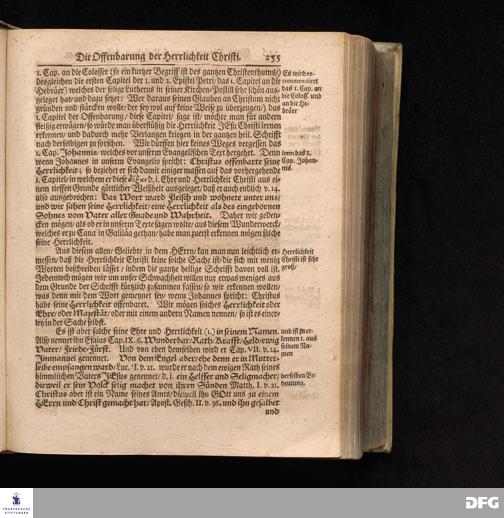 Die Offenbarung der Herrlichkeit Christi. 255
1. Cap. an die Colosser (so ein kurtzer Begriff ist des gantzen Christenthums/)
desgleichen die ersten Capitel der 1. und 2. Epistel Petri/ das 1. Capitel an die
Hebräer) welches der selige Lutherus in seiner Kirchen-Postill sehr schön aus-
geleget hat/ und dazu setzet: Wer daraus seinen Glauben an Christum nicht
gründen und stärcken wolle/ der sey wol auf keine Weise zu überzeugen/) das
1. Capitel der Offenbarung/ diese Capitel/ sage ist/ möchte man für andern
fleißig erwägen/ so würde man überflüßig die Herrlichkeit JEsu Christi lernen
erkennen/ und dadurch mehr Verlangen kriegen in der gantzen heil. Schrifft
nach derselbigen zu forschen. Wir dürffen hier keines Weges vergessen das
1. Cap. Johannis, welches vor unserm Evangelischen Text hergehet. Denn
wenn Johannes in unserm Evangelio spricht: Christus offenbarte seine
Herrlichkeit; so beziehet er sich damit einiger massen auf das vorhergehende
1. Capitel/ in welchem er diese d. i. Ehr und Herrlichkeit Christi aus ei-
nem tieffen Grunde göttlicher Weißheit ausgeleget/ daß er auch endlich v. 14.
also ausgebrochen: Das Wort ward Fleisch und wohnete unter uns/
und wir sahen seine Herrlichkeit/ eine Herrlichkeit als des eingebornen
Sohnes vom Vater aller Gnade und Wahrheit. Daher wir geden-
cken mögen/ als ob er in unserm Texte sagen wolte/ aus diesem Wunderwerck/
welches er zu Cana in Galiläa gethan/ habe man zuerst erkennen mögen solche
seine Herrlichkeit.
Aus diesem allen/ Geliebte in dem HErrn/ kan man nun leichtlich er-
messen/ daß die Herrlichkeit Christi keine solche Sache ist/ die sich mit wenig
Worten beschreiben lässet/ indem die gantze heilige Schrifft davon voll ist.
Jedennoch mögen wir um unser Schwachheit willen nur etwas weniges aus
dem Grunde der Schrifft kürtzlich zusammen fassen/ so wir erkennen wollen/
was denn mit dem Wort gemeynet sey/ wenn Johannes spricht: Christus
habe seine Herrlichkeit offenbaret. Wir mögen solches Herrlichkeit oder
Ehre/ oder Majestät/ oder mit einem andern Namen nennen/ so ists einer-
ley in der Sache selbst.
Es ist aber solche seine Ehre und Herrlichkeit (1.) in seinem Namen.
Also nennet ihn Esaias Cap. IX. 6. Wunderbar/ Rath/ Krafft/ Held/ ewig
Vater/ Friede-Fürst. Und von eben demselben wird er Cap. VII. v. 14.
Immanuel genennet. Von dem Engel aber/ ehe denn er in Mutter-
leibe empfangen ward/ Luc. I. v. 21. wurde er nach dem ewigen Rath seines
himmlischen Vaters JEsus genennet/ d. i. ein Helffer und Seligmacher/
dieweil er sein Volck selig machet von ihren Sünden Matth. I. v. 21.
Christus aber ist ein Name seines Amts/ dieweil ihn GOtt uns zu einem
HErrn und Christ gemacht hat/ Apost. Gesch. II. v. 36. und ihn gesalbet
und
Es wird re-
commendiret
das 1. Cap. an
die Coloss. und
an die He-
bräer
item das 1.
Cap. Johan-
nis.
Herrlichkeit
Christi ist sehr
groß/
und ist zu er-
kennen 1. aus
seinem Na-
men
derselben Be-
deutung.
FRANCKESCHE
STIFTUNGEN
DFG